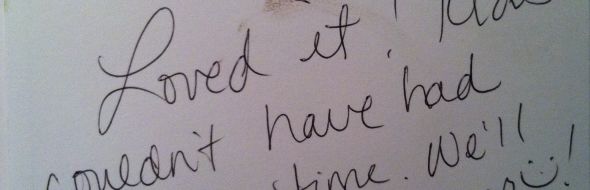 Loved it!
couldn't have had
time. We'll